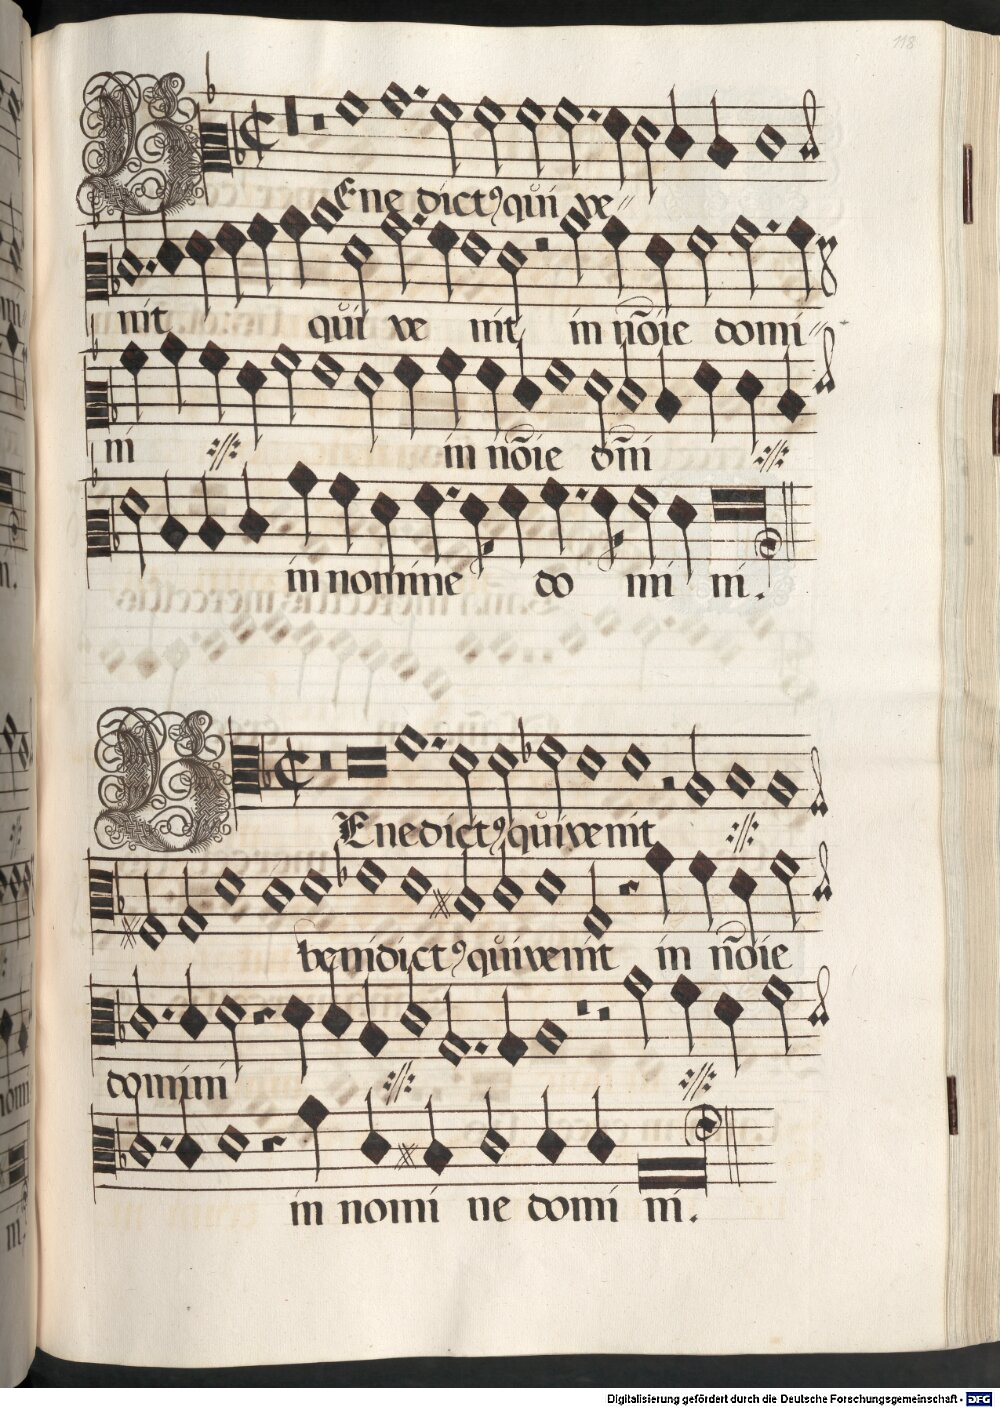 118
BEne dictꝰ qui ve
nit qui ve nit in nōīe domi
ni in nōīe dm̄i
in nomine do mi ni.
BEnedictꝰ qui venit
benidictꝰ qui venit in nōīe
domini
in nomi ne domi ni.
Digitalisierung gefördert durch die Deutsche Forschungsgemeinschaft - DFG